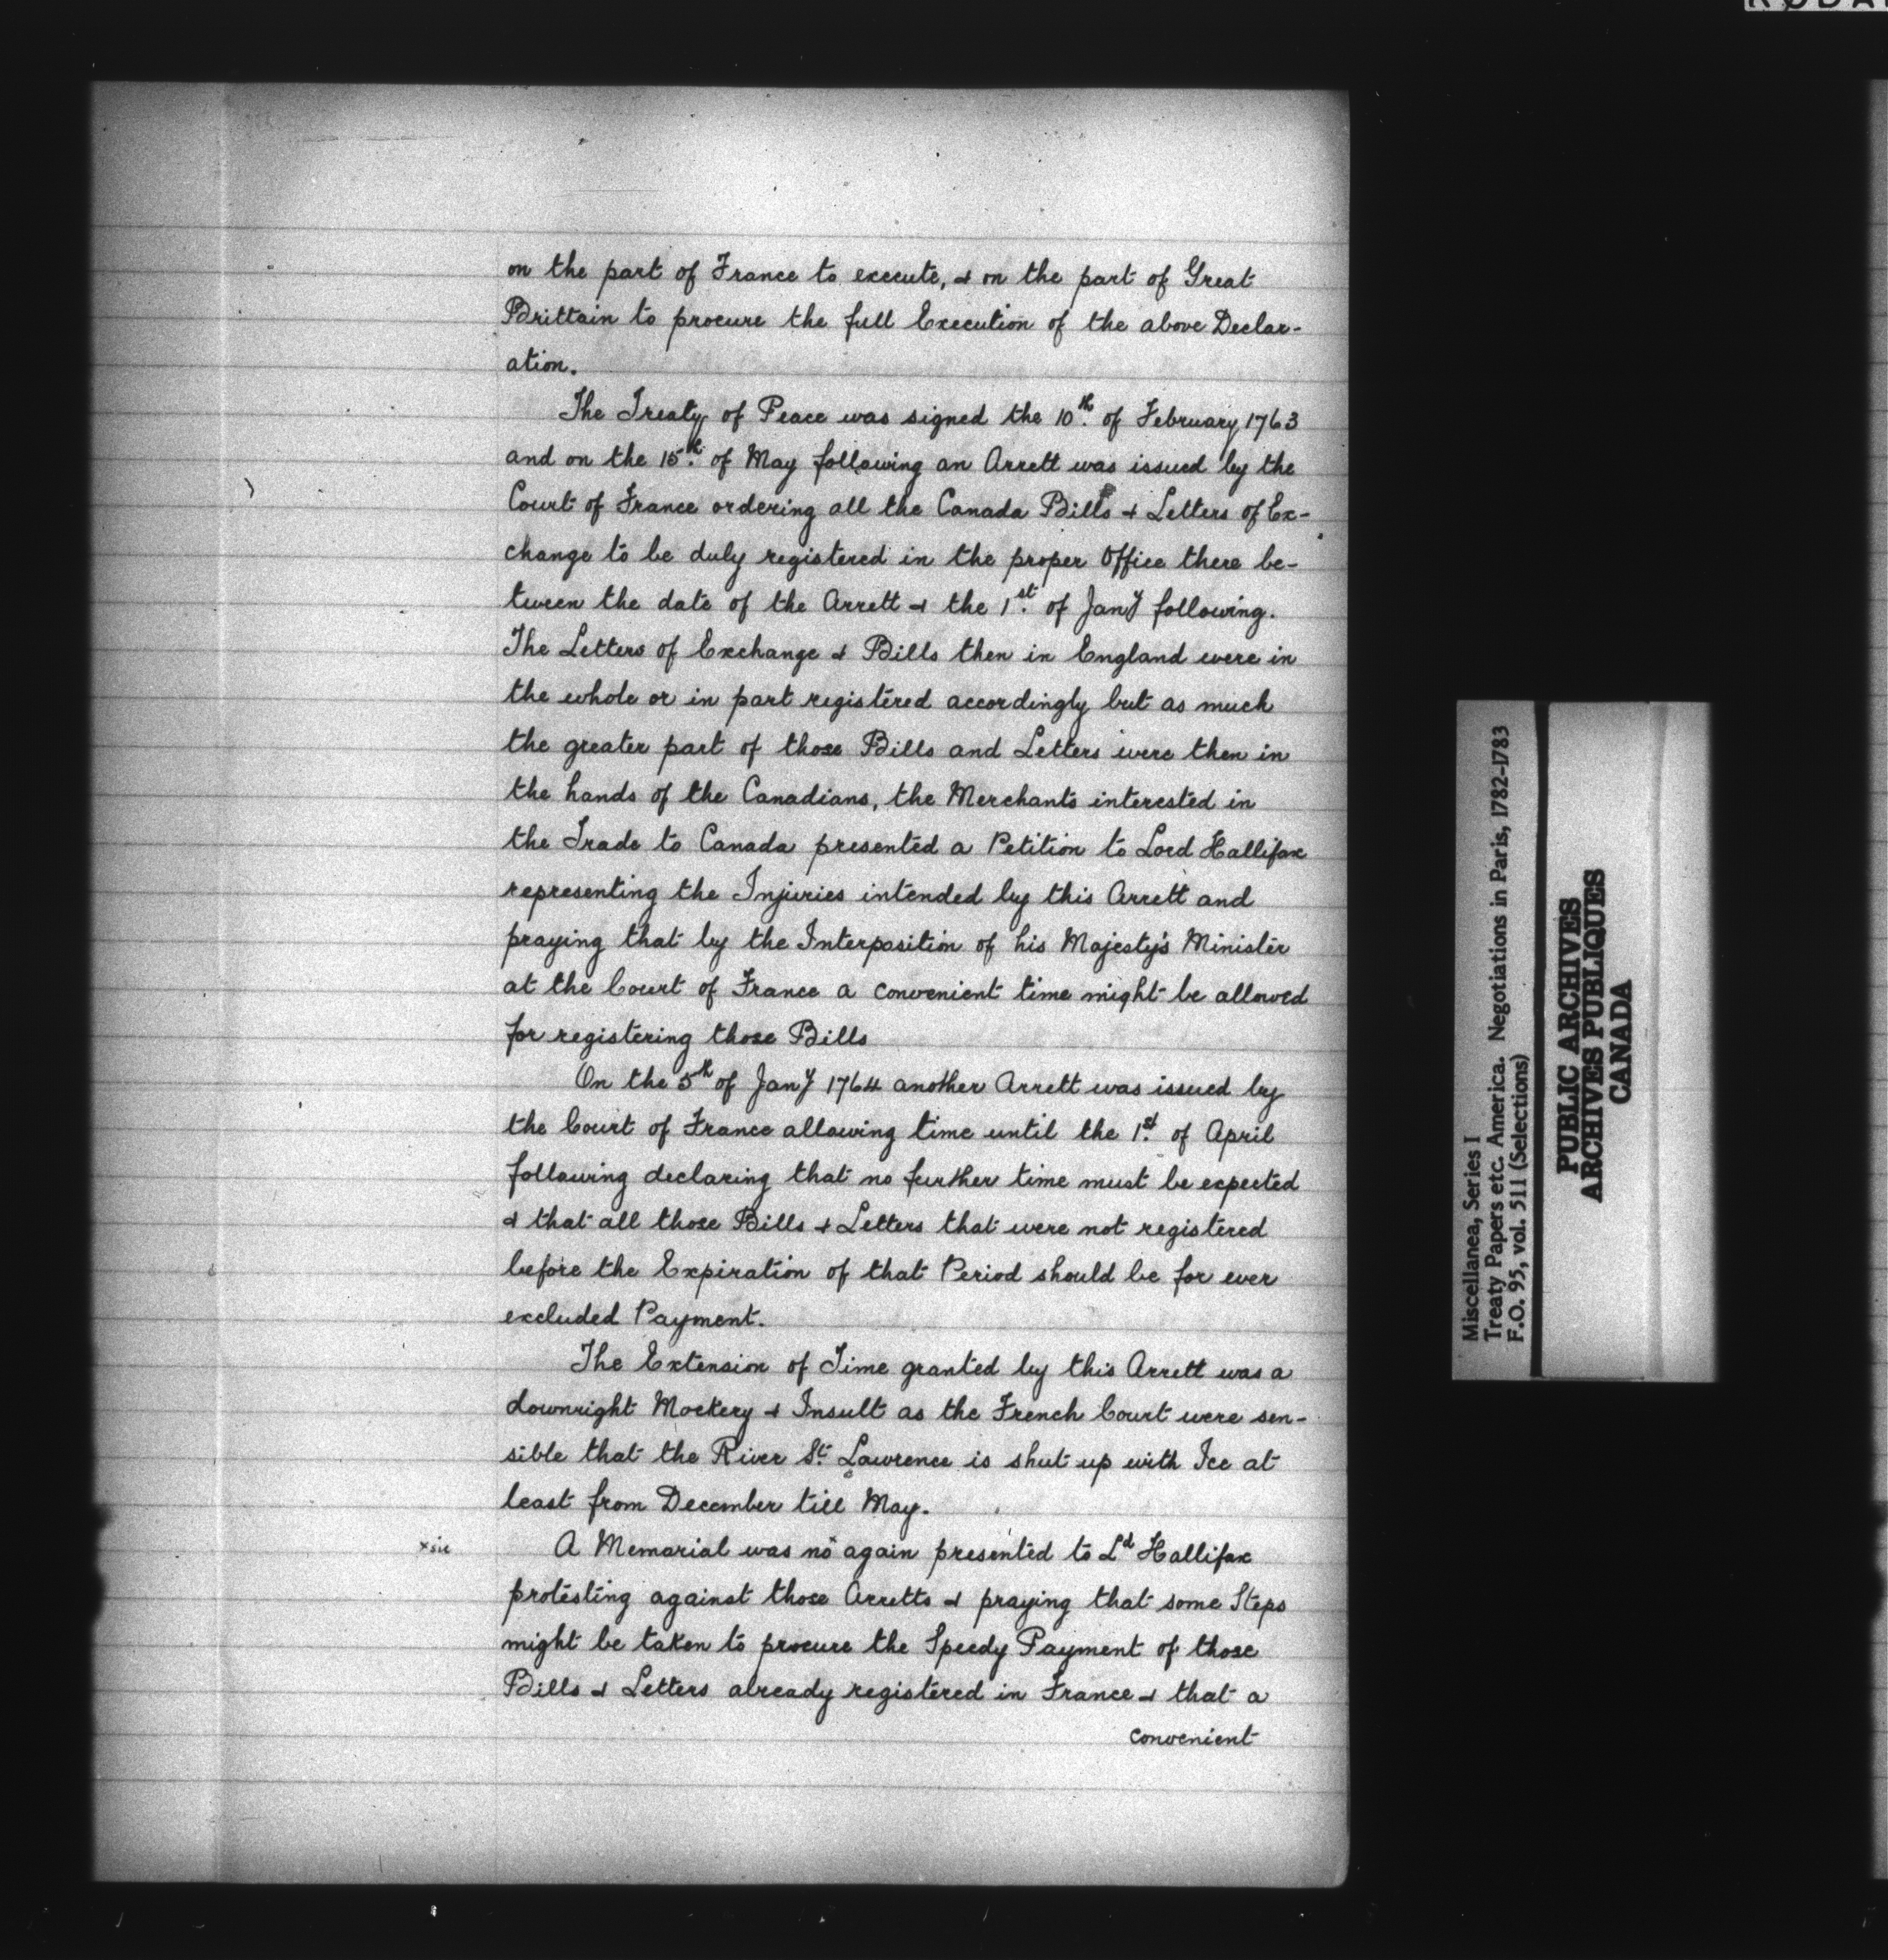 on the part of France to execute, & on the part of Great
Brittain to procure the full Execution of the above Declar-
ation.
The Treaty of Peace was signed the 10th. of February 1763
and on the 15th. of May following an Arrett was issued by the
Court of France ordering all the Canada Bills & Letters of Ex-
change to be duly registered in the proper Office there be-
tween the date of the Arrett & the 1st. of Jany following.
The Letters of Exchange & Bills then in England were in
the whole or in part registered accordingly but as much
the greater part of those Bills and Letters were then in
the hands of the Canadians, the Merchants interested in
the Trade to Canada presented a Petition to Lord Hallifax
representing the Injuries intended by this Arrett and
praying that by the Interposition of his Majesty's Minister
at the Court of France a convenient time might be allowed
for registering those Bills
On the 5th of Jany 1764 another Arrett was issued by
the Court of France allowing time until the 1st. of April
following declaring that no further time must be expected
& that all those Bills & Letters that were not registered
before the Expiration of that Period should be for ever
excluded Payment.
The Extension of Time granted by this Arrett was a
downright Mockery & Insult as the French Court were sen-
sible that the River St. Lawrence is shut up with Ice at
least from December till May.
xsic A Memorial was nox again presented to Ld Hallifax
protesting against those Arretts & praying that some Steps
might be taken to procure the Speedy Payment of those
Bills & Letters already registered in France & that a
convenient
Miscellanea, Series I
Treaty Papers etc. America. Negotiations in Paris, 1782-1783
F.O. 95, vol. 511 (Selections)
PUBLIC ARCHIVES
ARCHIVES PUBLIQUES
CANADA